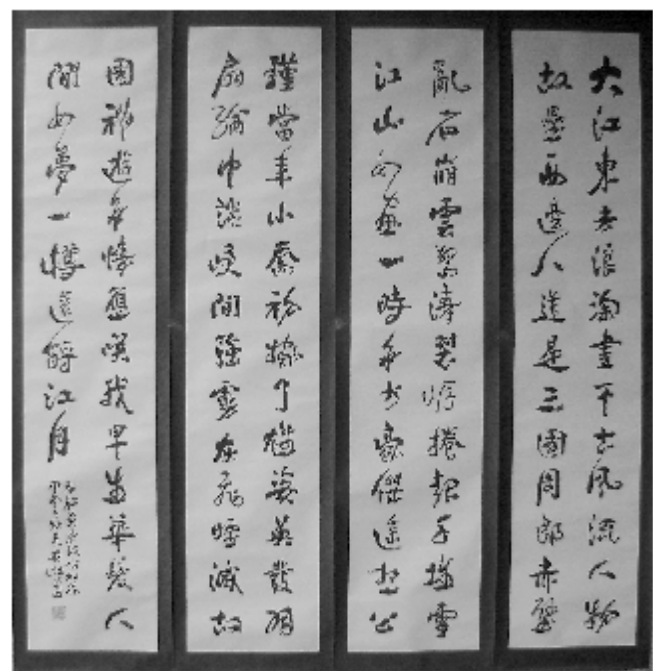 大江東去浪淘盡千古風流人物
故壘西邊人道是三國周郎赤壁
亂石崩雲驚濤裂岸捲起千堆雪
江山如畫一時多少豪傑遙想公
瑾當年小喬初嫁了雄姿英發羽
扇綸巾談笑間強虜灰飛煙滅故
國神遊多情應笑我早生華髮人
間如夢一樽還酹江月